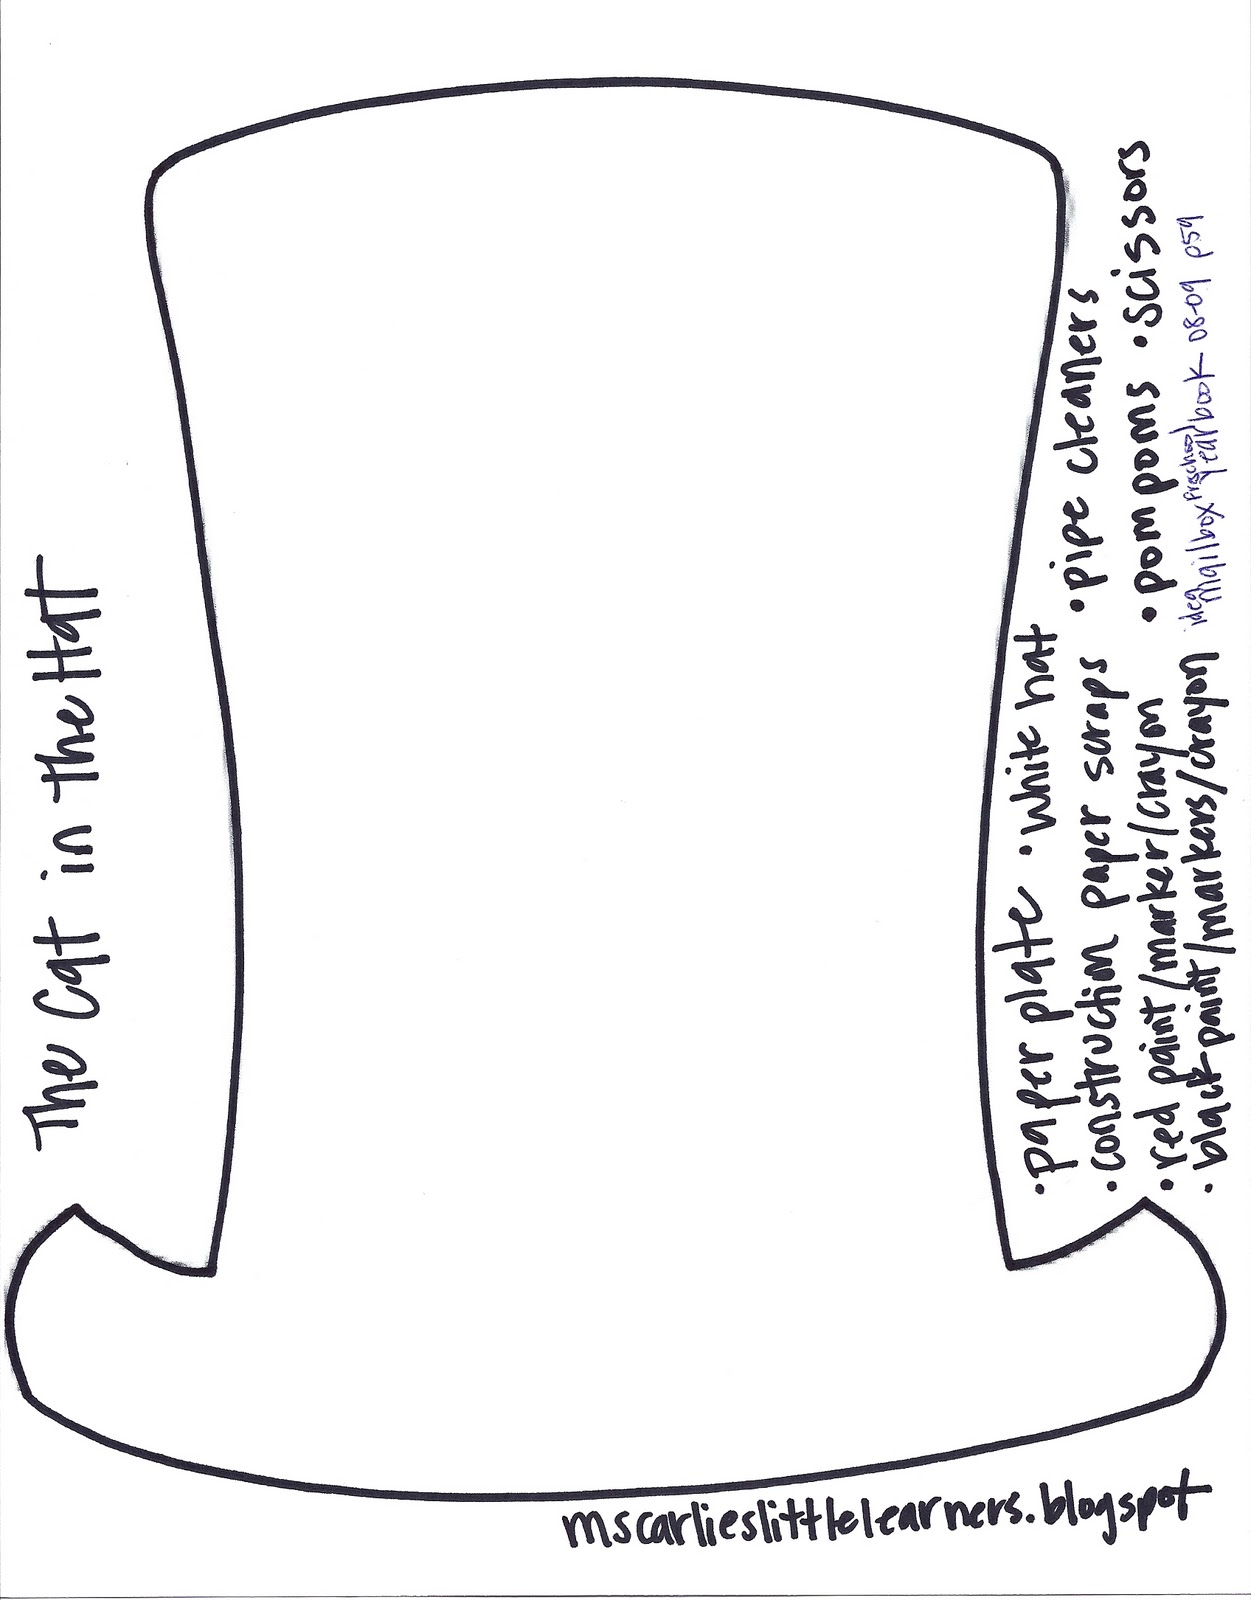 The Cat in the Hat
• paper plate • white hat
• construction paper scraps • pipe cleaners
• red paint/marker/crayon • pom poms • scissors
• black paint/markers/crayon
idea
mailbox preschool yearbook 08-09 p59
mscarlieslittlelearners.blogspot